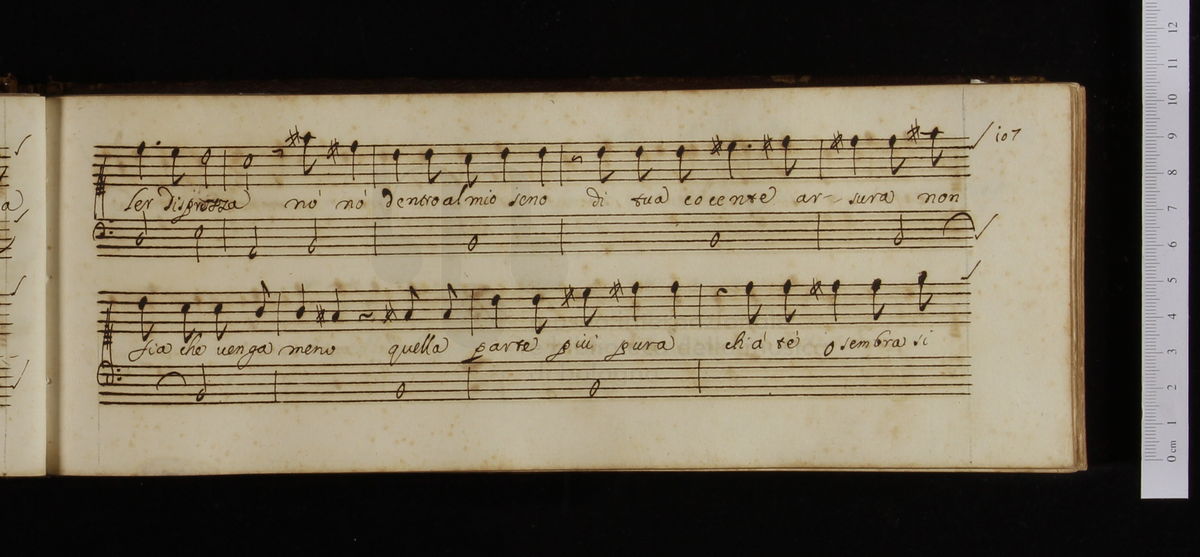 107
ser disprezza nò nò dentro al mio seno di tua cocente ar-sura non
sia che venga meno quella parte più pura ch'a tè sembra sì